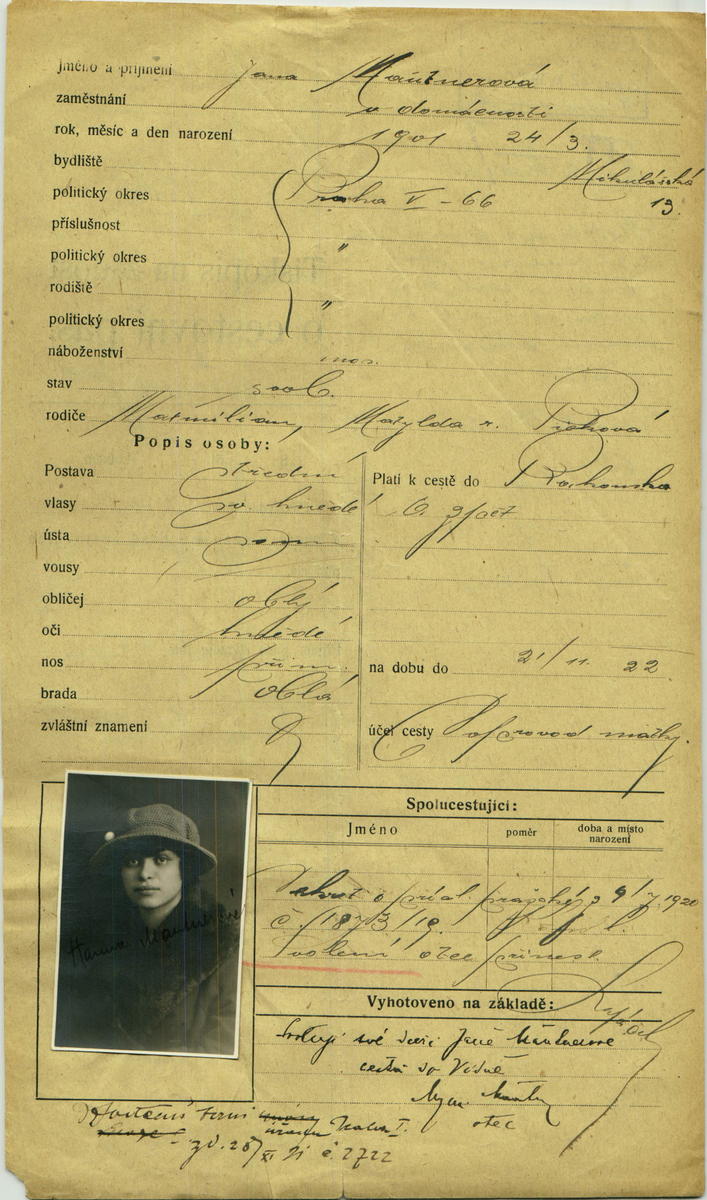 jméno a příjmení Jana Mautnerová
zaměstnání v domácnosti
rok, měsíc a den narození 1901 24/3.
bydliště Mikulášská
politický okres Praha V - 66 19.
příslušnost
politický okres "
rodiště
politický okres "
náboženství mos.
stav svob.
rodiče Maxmilian, Matylda r. Picková
Popis osoby:
Postava střední
vlasy sv. hnědé
ústa
vousy
obličej oblý
oči hnědé
nos přím.
brada oblá
zvláštní znamení
Platí k cestě do Rakouska
a zpět
na dobu do 21/11. 22
účel cesty doprovod matky.
Spolucestující:
Jméno poměr doba a místo narození
o přísl. pražské z 9/7 1920
č. 1873/19.
Svolení otce přinesl.
Vyhotoveno na základě:
své dceři Janě Mautnerové
cestu do Vídně
otec
Hanna Mautnerová
č. 2722